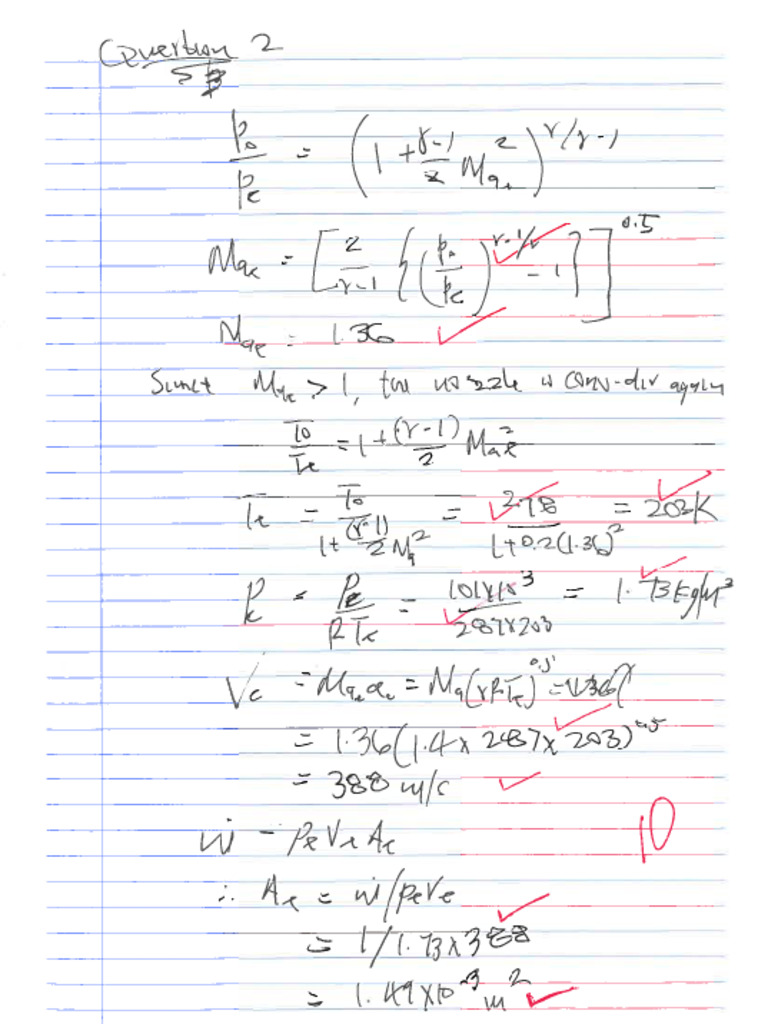 Question 2
p₀/pₑ = (1 + γ-1/2 Maₑ²)^γ/γ-1
Maₑ = [2/γ-1 {(p₀/pₑ)^γ-1/γ - 1}]^0.5
Maₑ = 1.36
Maₑ > 1, the nozzle is conv-div again
T₀/Tₑ = 1 + (γ-1)/2 Maₑ²
Tₑ = T₀/1+(γ-1)/2 Ma² = 278/1+0.2(1.36)² = 203K
ρₑ = Pₑ/RTₑ = 101×10³/287×203 = 1.73 kg/m³
Vₑ = Maₑaₑ = Ma(γRTₑ)^0.5 = 1.36(
= 1.36(1.4 × 287 × 203)^0.5
= 388 m/s
ṁ = ρₑVₑAₑ
10
∴ Aₑ = ṁ/ρₑVₑ
= 1/1.73×388
= 1.49×10⁻³ m²